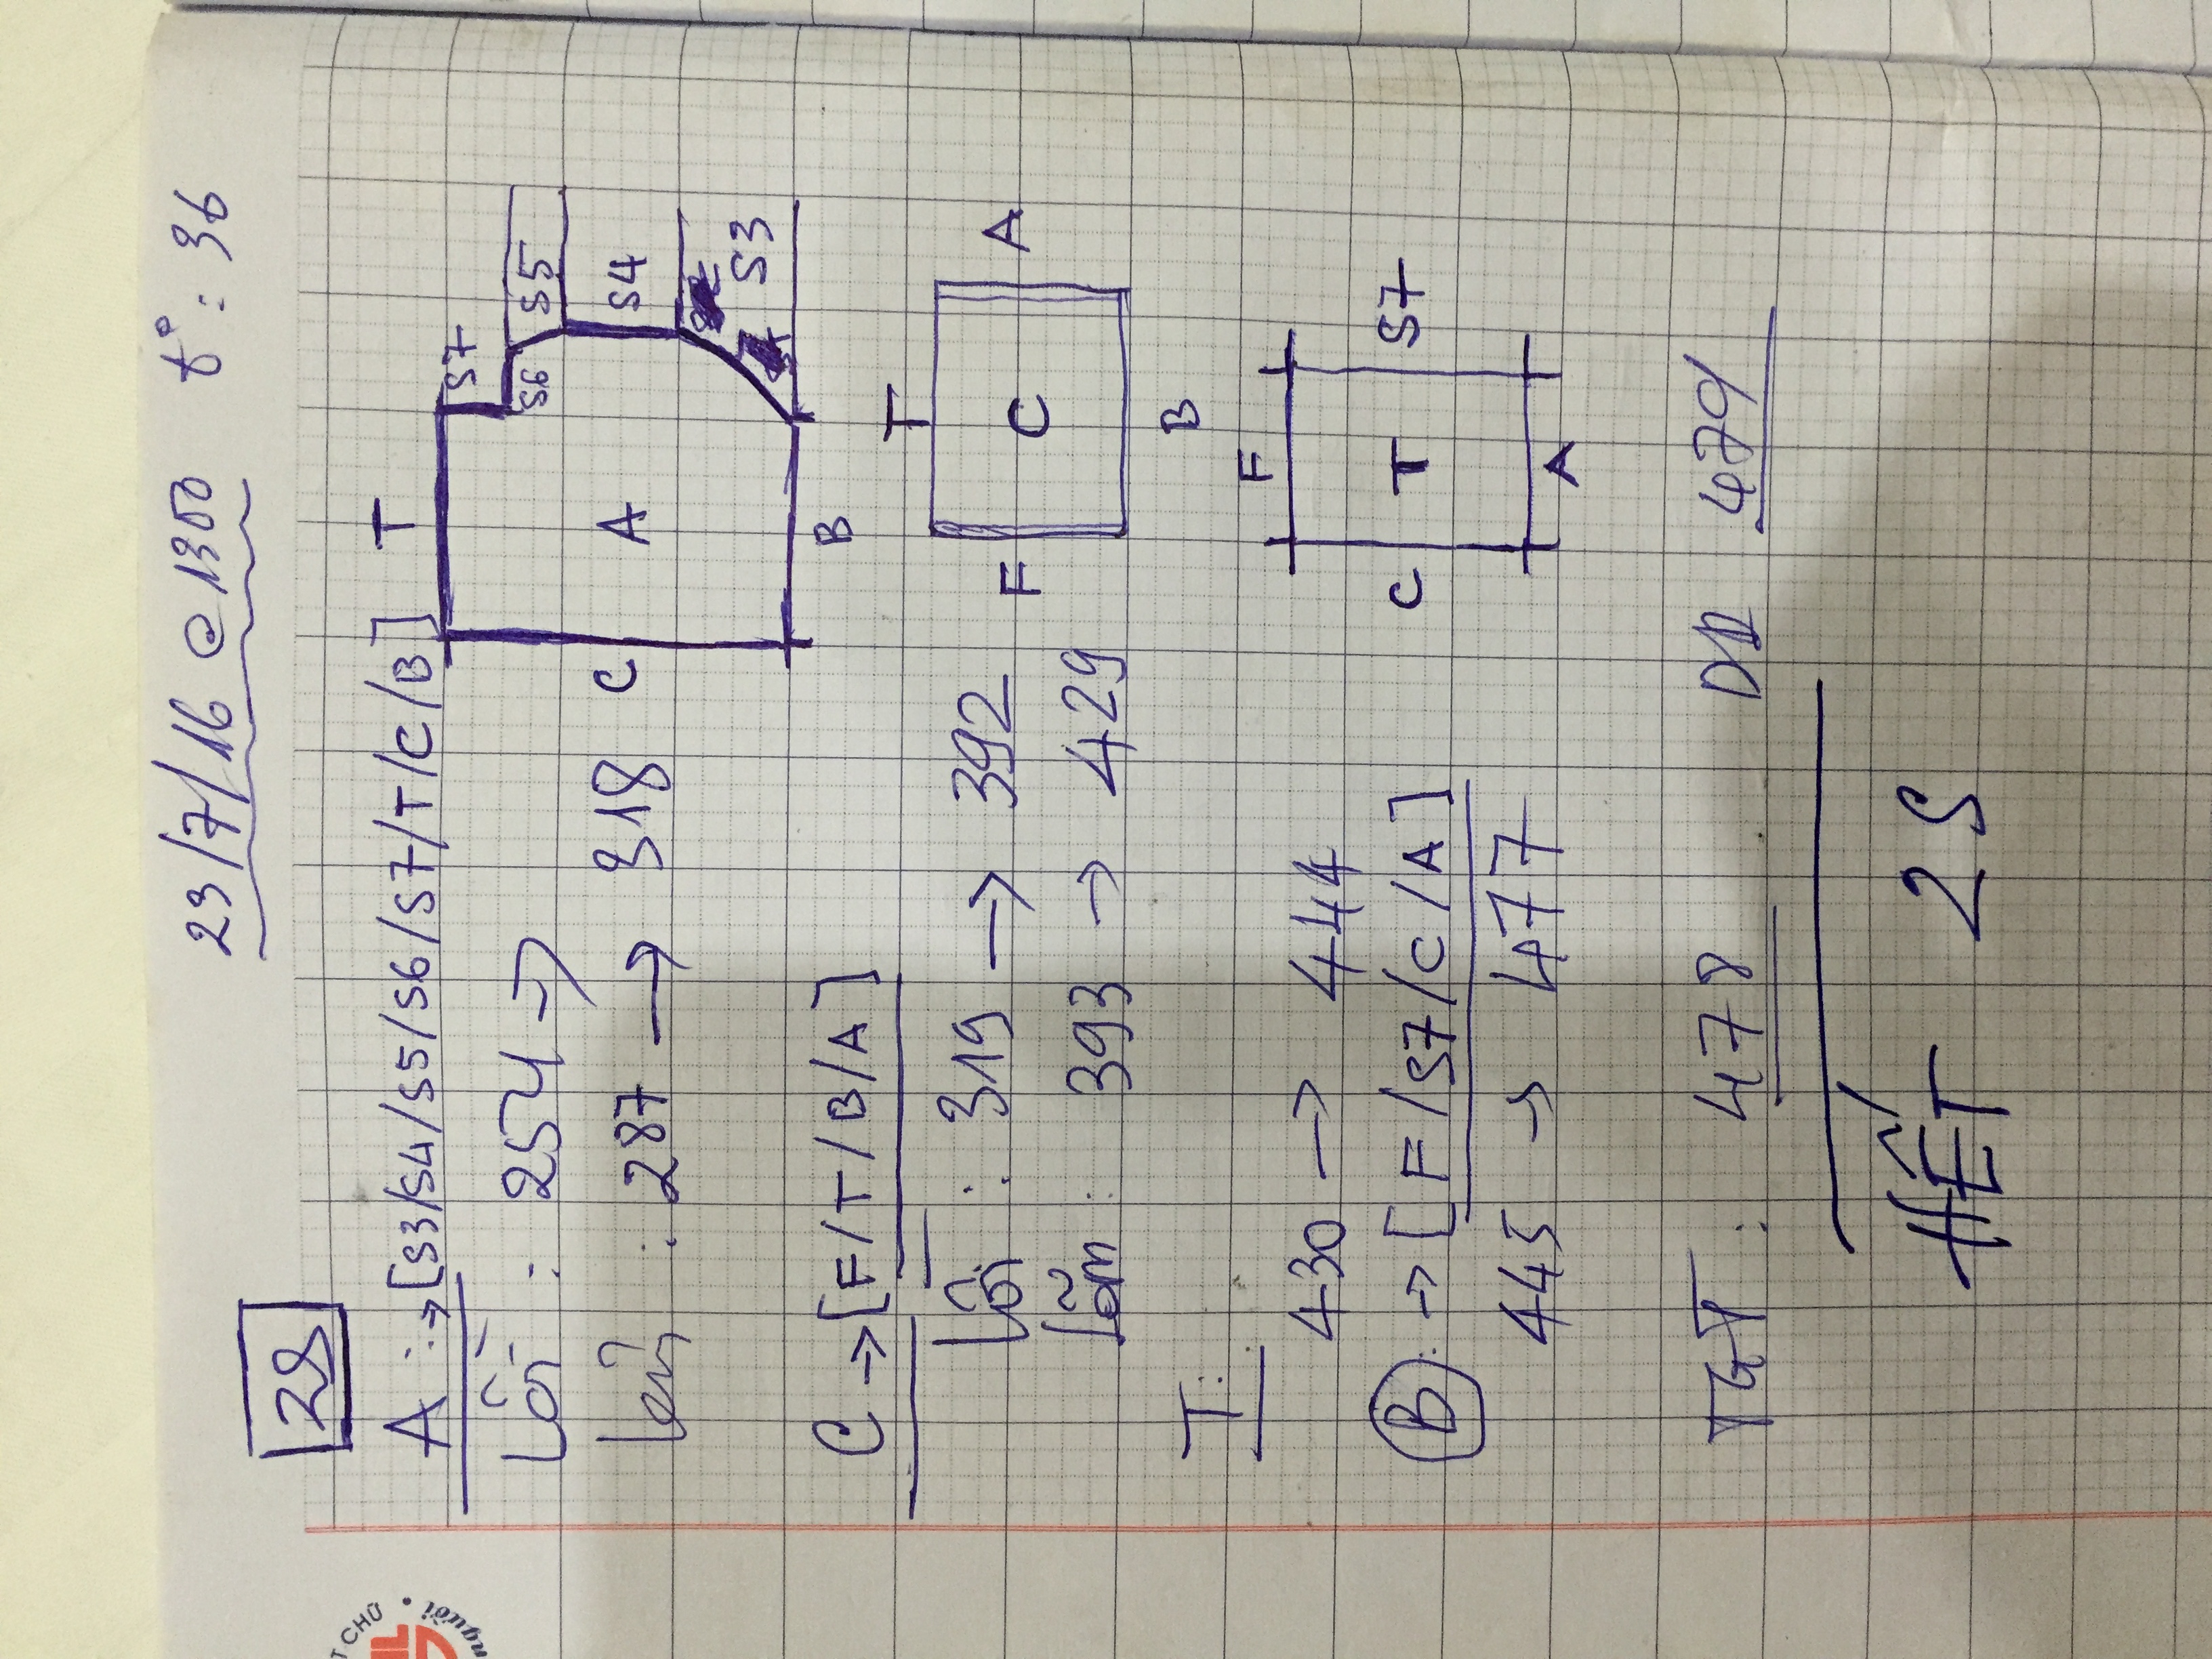 23/7/16 @ 1300 t° : 36
2S
A : → [S3/S4/S5/S6/S7/T/C/B]
Lồi : 254 →
: 287 → 318
T
S7
S6 S5
C A S4
S3
B
C → [F/T/B/A]
Lồi : 319 → 392
Lõm : 393 → 429
T
F C A
B
T:
430 → 444
F
C T S7
A
B : → [F/S7/C/A]
445 → 477
TGT : 478 479
HẾT 2S
T CHỮ
người.